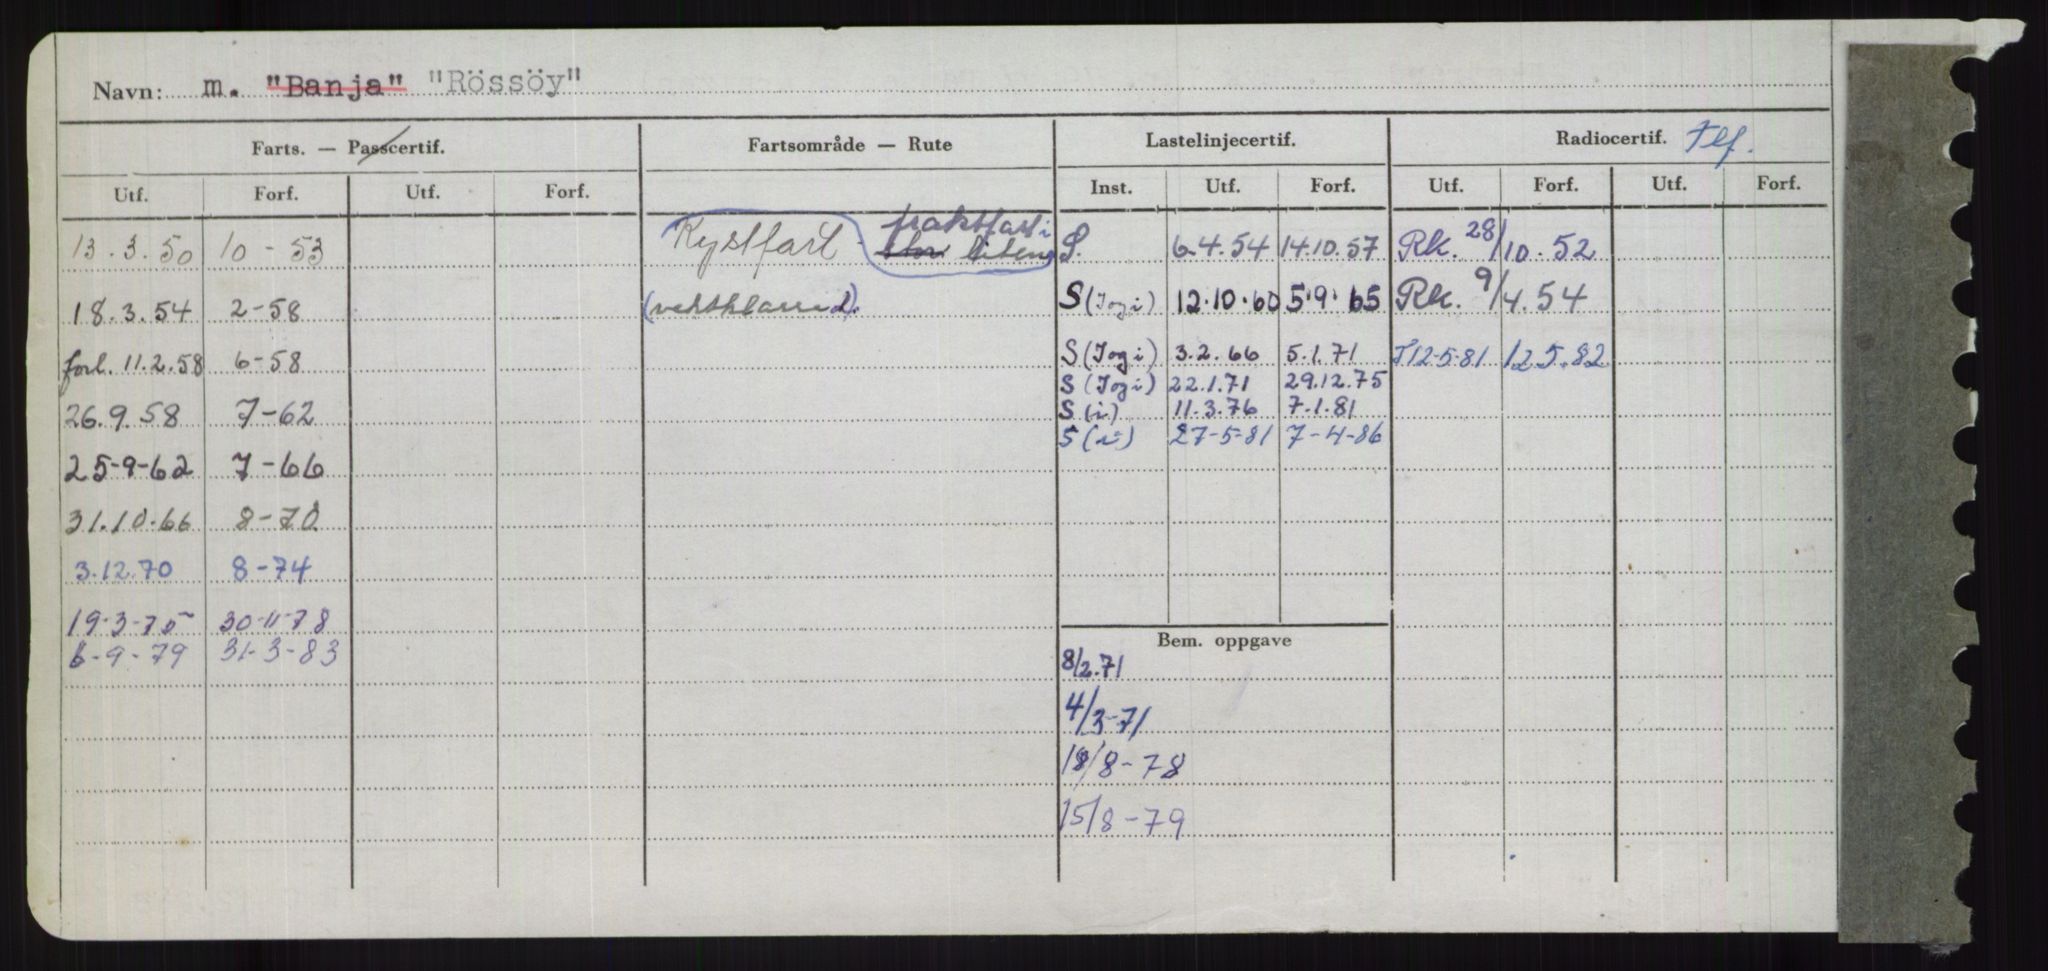 Navn: m. "Banja" "Rössöy"
Farts. — Passcertif. Fartsområde — Rute Lastelinjecertif. Radiocertif. Tlf.
Utf. Forf. Utf. Forf. Inst. Utf. Forf. Utf. Forf. Utf. Forf.
fraktfart i
13.3.50 10-53 Kystfart - stor liten S. 6.4.54 14.10.57 Rk. 28/10.52
18.3.54 2-58 S (I og i) 12.10.60 5.9.65 Rk. 9/4.54
forl. 11.2.58 6-58 S (I og i) 3.2.66 5.1.71 T12-5-81 12.5.82
S (I og i) 22.1.71 29.12.75
26.9.58 7-62 S (i) 11.3.76 7.1.81
S (i) 27-5-81 7-4-86
25-9-62 7-66
31.10.66 8-70
3.12.70 8-74
19-3-75 30-11-78
6-9-79 31-3-83
Bem. oppgave
8/2.71
4/3-71
18/8-78
15/8-79